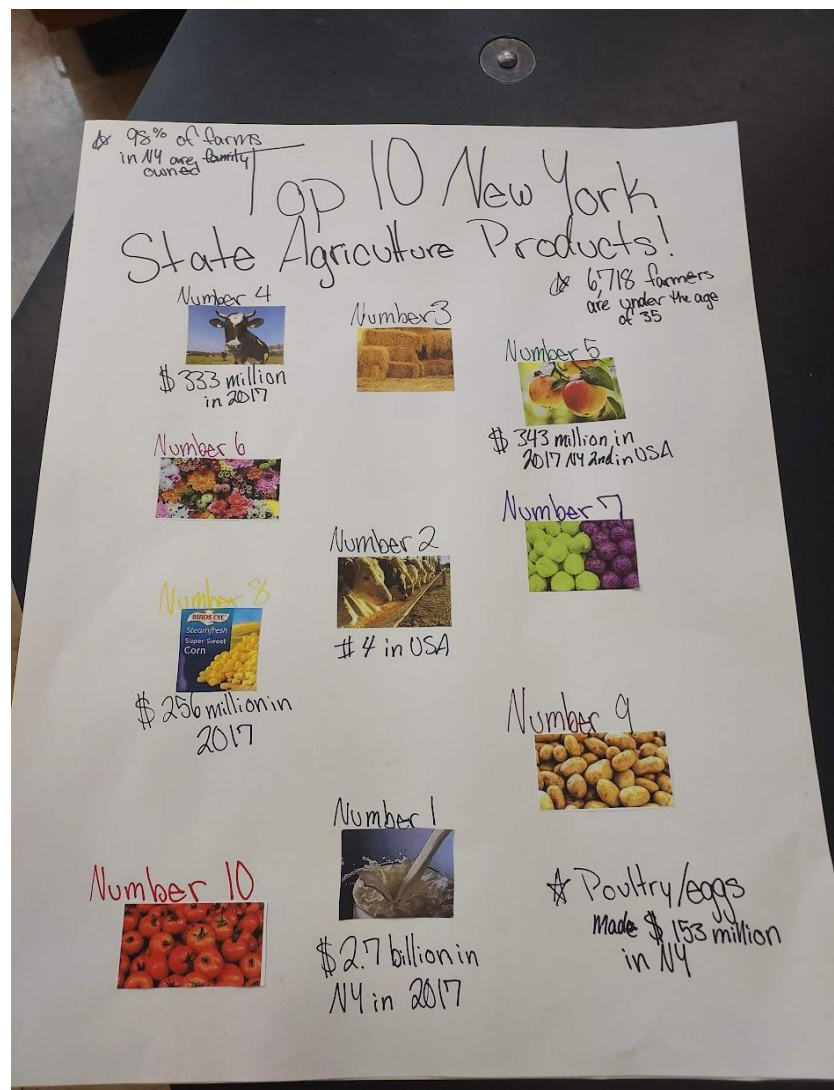 ☆ 98% of farms
in NY are family
owned
Top 10 New York
State Agriculture Products!
☆ 6,718 farmers
are under the age
of 35
Number 4
$333 million
in 2017
Number 3
Number 5
$343 million in
2017 NY 2nd in USA
Number 6
Number 2
#4 in USA
Number 7
Number 8
BIRDS EYE
Steamfresh
Super Sweet
Corn
$256 million in
2017
Number 9
Number 1
$2.7 billion in
NY in 2017
Number 10
☆ Poultry/eggs
Made $153 million
in NY